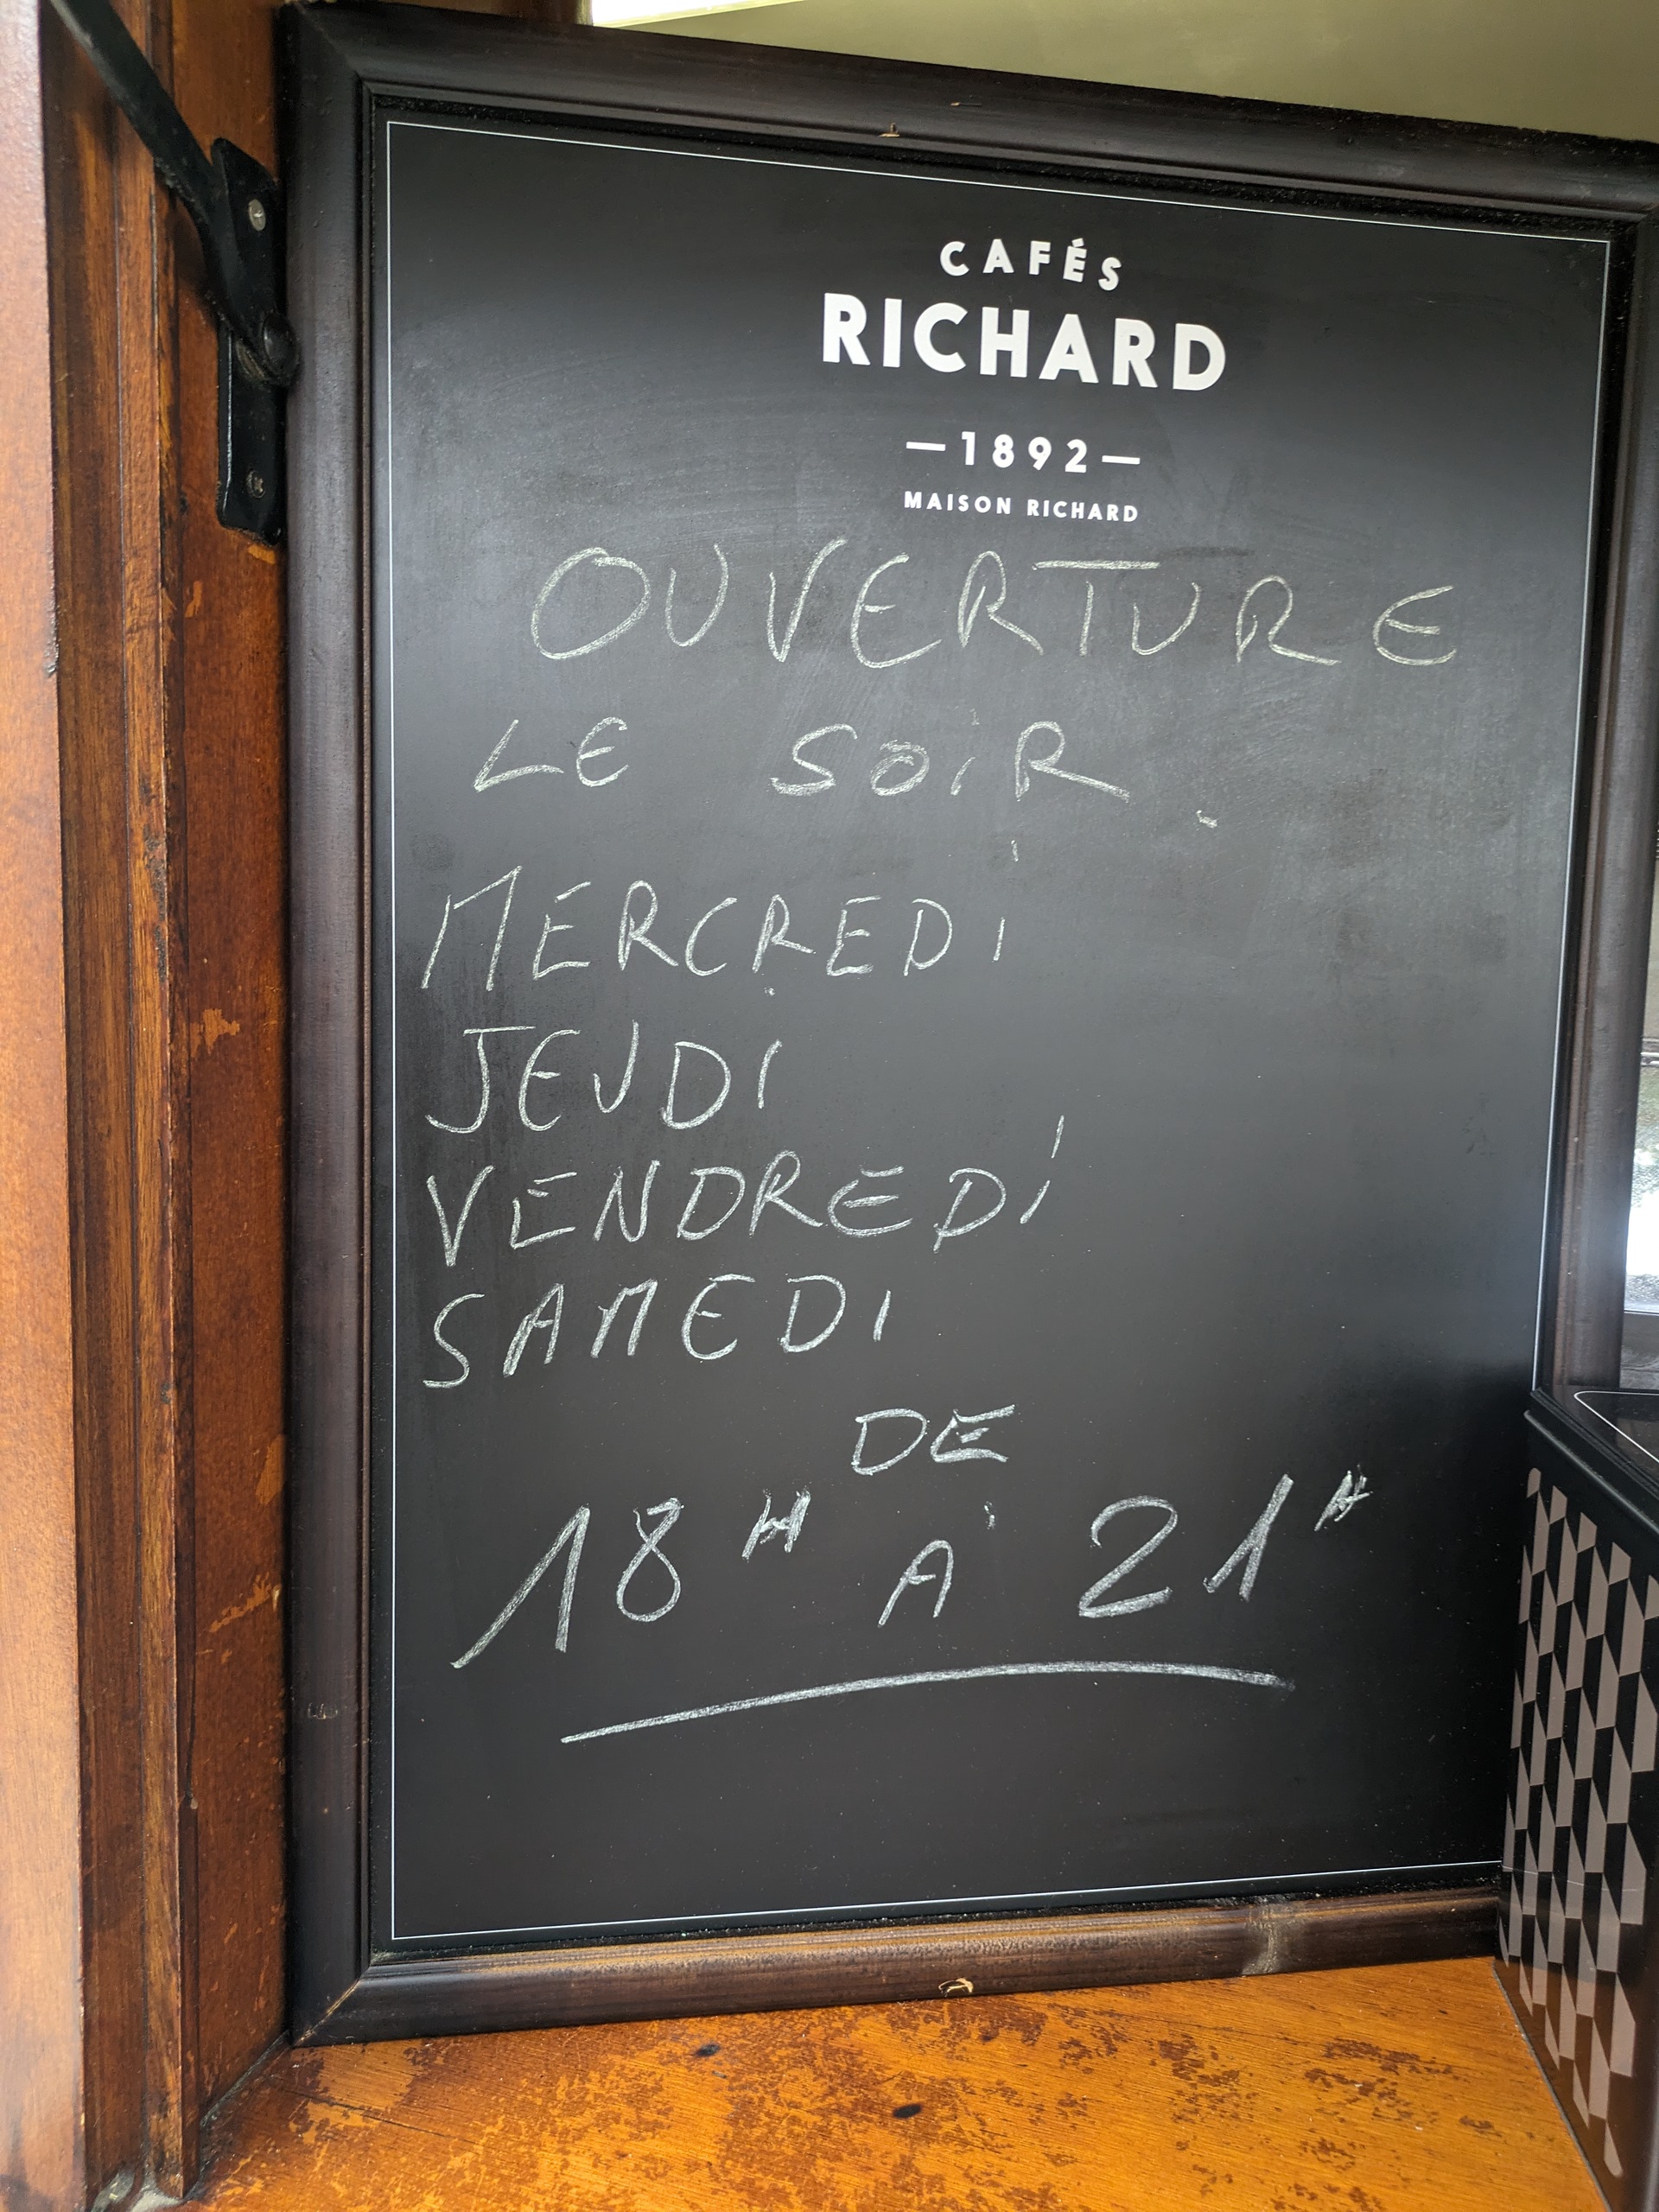 CAFÉS
RICHARD
—1892—
MAISON RICHARD
OUVERTURE
LE SOiR.
MERCREDi
JEUDI
VENDREDi
SAMEDI
DE
18H À 21H